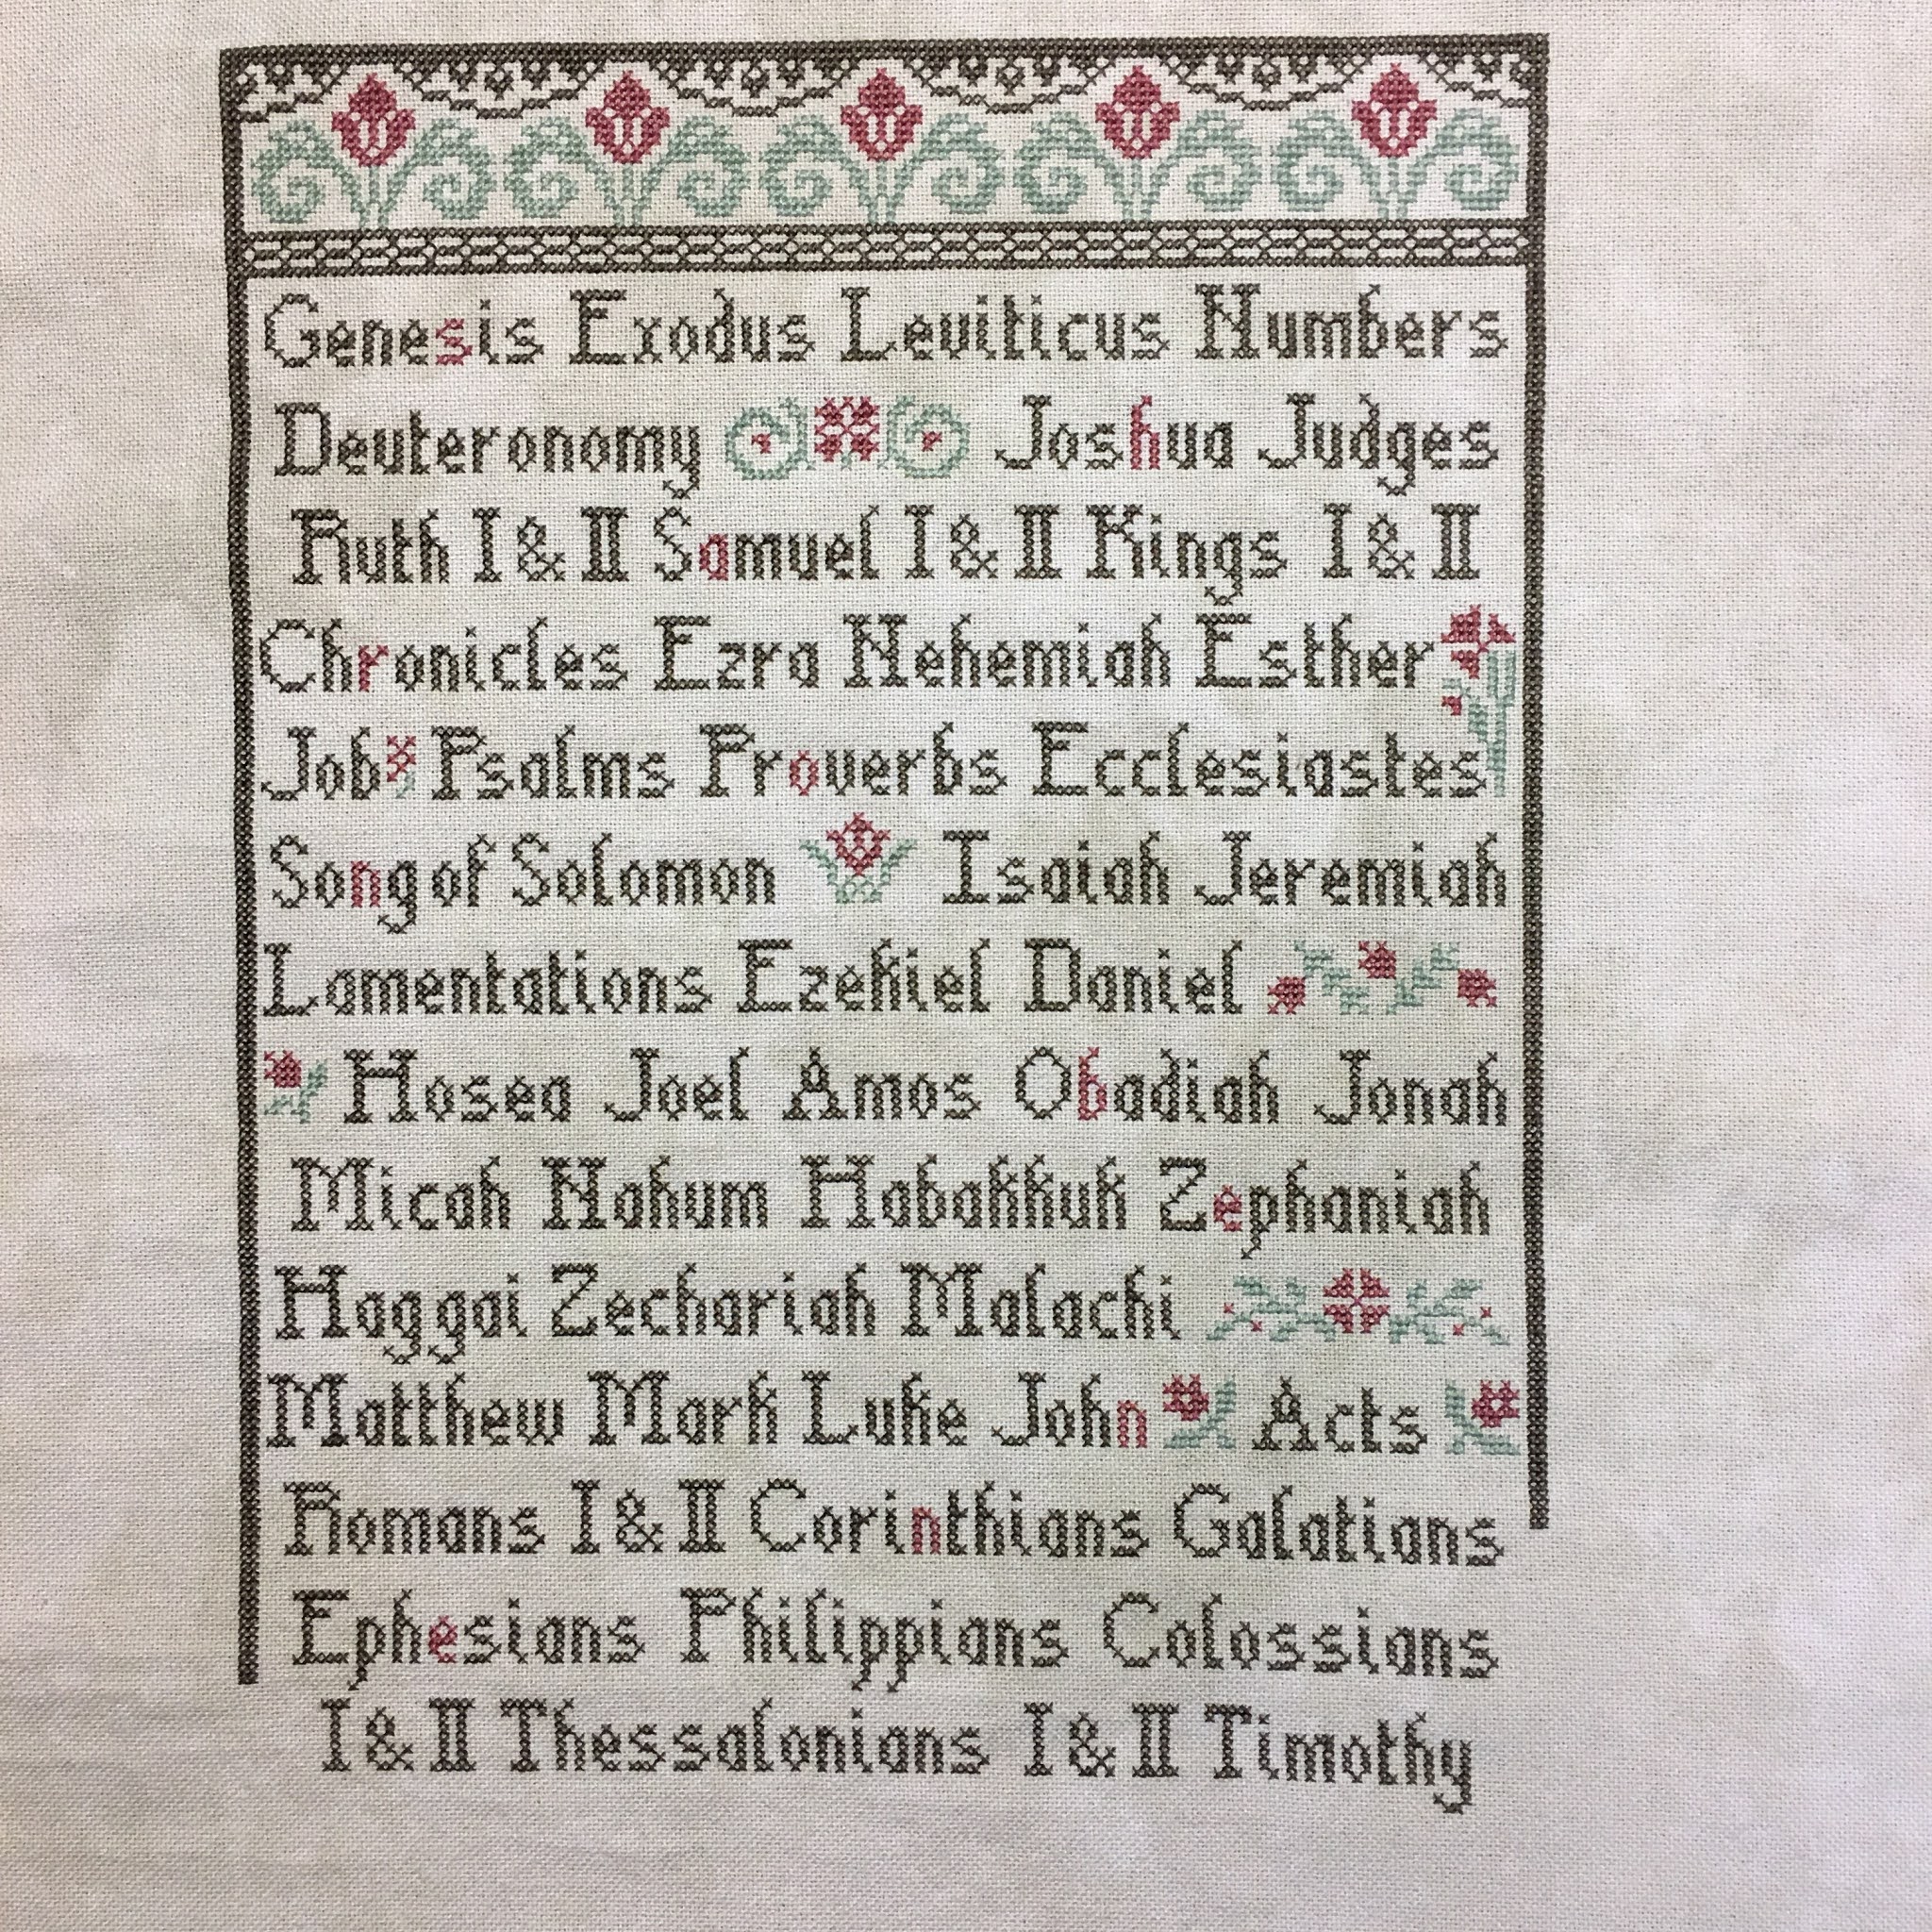 Genesis Exodus Leviticus Numbers
Deuteronomy Joshua Judges
Ruth I & II Samuel I & II Kings I & II
Chronicles Ezra Nehemiah Esther
Job Psalms Proverbs Ecclesiastes
Song of Solomon Isaiah Jeremiah
Lamentations Ezekiel Daniel
Hosea Joel Amos Obadiah Jonah
Micah Nahum Habakkuk Zephaniah
Haggai Zechariah Malachi
Matthew Mark Luke John Acts
Romans I & II Corinthians Galatians
Ephesians Philippians Colossians
I & II Thessalonians I & II Timothy